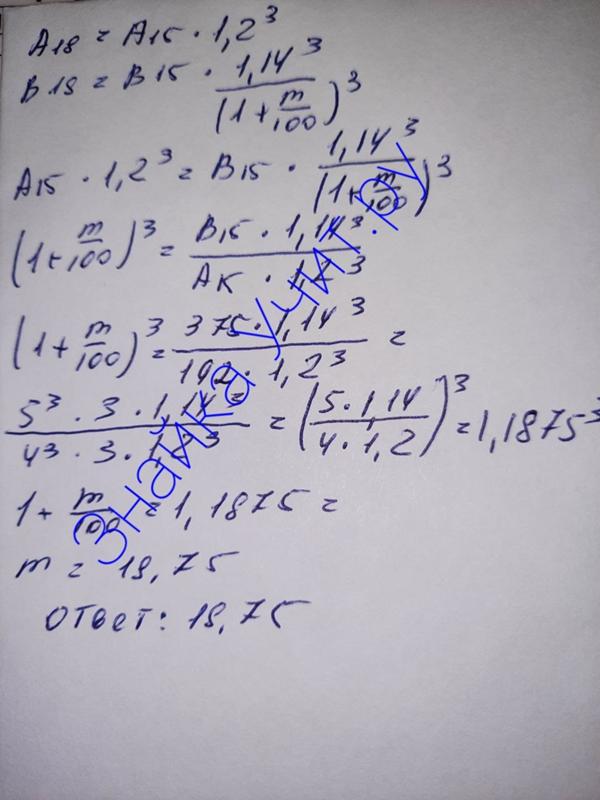 A18 = A15 · 1,2³
B18 = B15 · 1,14³ / (1+m/100)³
A15 · 1,2³ = B15 · 1,14³ / (1+m/100)³
(1+m/100)³ = B15 · 1,14³ / A15 · 1,2³
(1+m/100)³ = 375 · 1,14³ / 192 · 1,2³ =
5³ · 3 · 1,14³ / 4³ · 3 · 1,2³ = (5 · 1,14 / 4 · 1,2)³ = 1,1875³
1 + m/100 = 1,1875 =
m = 18,75
Ответ: 18,75
Знайка Учит.ру